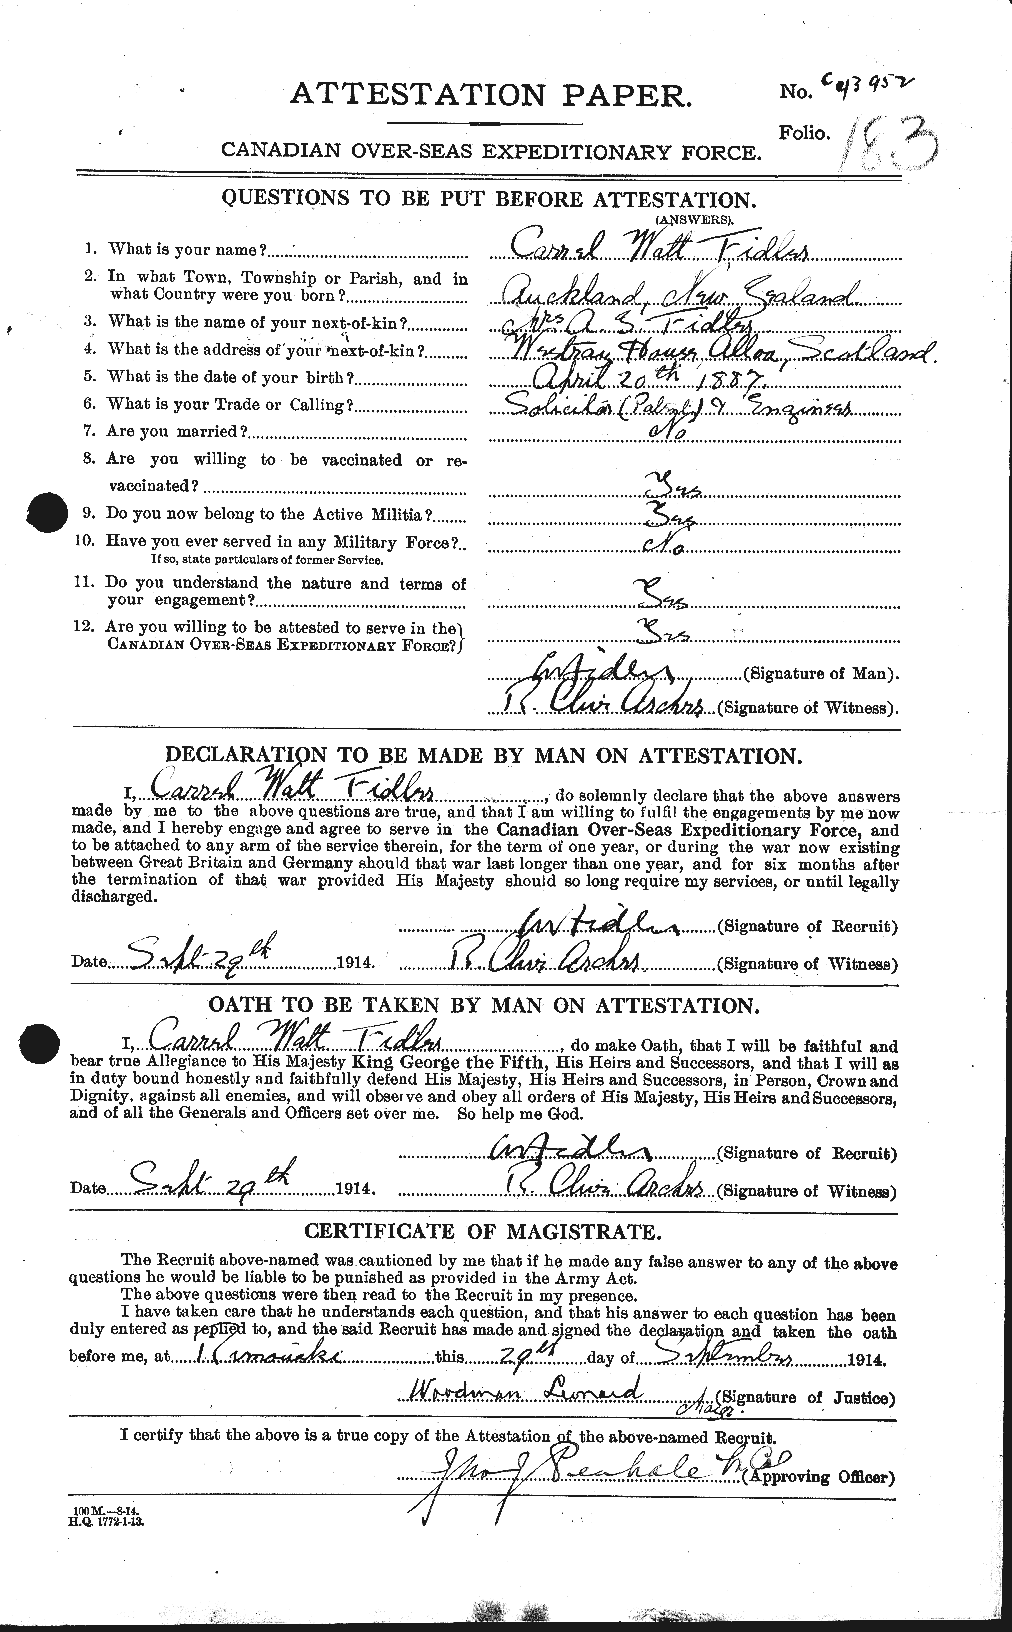 ATTESTATION PAPER.
No.
Folio. 183
CANADIAN OVER-SEAS EXPEDITIONARY FORCE.
QUESTIONS TO BE PUT BEFORE ATTESTATION.
(ANSWERS).
1. What is your name? Carrel Watt Fidler
2. In what Town, Township or Parish, and in
what Country were you born? Auckland, New Zealand
3. What is the name of your next-of-kin? Mrs A. S. Fidler
4. What is the address of your next-of-kin? House Alloa, Scotland.
5. What is the date of your birth? April 20th 1887.
6. What is your Trade or Calling? Solicitor (Patent) & Engineer
7. Are you married? No
8. Are you willing to be vaccinated or re-
vaccinated? Yes
9. Do you now belong to the Active Militia? Yes
10. Have you ever served in any Military Force? No
If so, state particulars of former Service.
11. Do you understand the nature and terms of
your engagement? Yes
12. Are you willing to be attested to serve in the
CANADIAN OVER-SEAS EXPEDITIONARY FORCE? Yes
CWFidler (Signature of Man).
R. Clive Archer (Signature of Witness).
DECLARATION TO BE MADE BY MAN ON ATTESTATION.
I, Carrel Watt Fidler, do solemnly declare that the above answers
made by me to the above questions are true, and that I am willing to fulfil the engagements by me now
made, and I hereby engage and agree to serve in the Canadian Over-Seas Expeditionary Force, and
to be attached to any arm of the service therein, for the term of one year, or during the war now existing
between Great Britain and Germany should that war last longer than one year, and for six months after
the termination of that war provided His Majesty should so long require my services, or until legally
discharged.
CWFidler (Signature of Recruit)
Date Sept 29th 1914. R. Clive Archer (Signature of Witness)
OATH TO BE TAKEN BY MAN ON ATTESTATION.
I, Carrel Watt Fidler, do make Oath, that I will be faithful and
bear true Allegiance to His Majesty King George the Fifth, His Heirs and Successors, and that I will as
in duty bound honestly and faithfully defend His Majesty, His Heirs and Successors, in Person, Crown and
Dignity, against all enemies, and will observe and obey all orders of His Majesty, His Heirs and Successors,
and of all the Generals and Officers set over me. So help me God.
CWFidler (Signature of Recruit)
Date Sept 29th 1914. R. Clive Archer (Signature of Witness)
CERTIFICATE OF MAGISTRATE.
The Recruit above-named was cautioned by me that if he made any false answer to any of the above
questions he would be liable to be punished as provided in the Army Act.
The above questions were then read to the Recruit in my presence.
I have taken care that he understands each question, and that his answer to each question has been
duly entered as replied to, and the said Recruit has made and signed the declaration and taken the oath
before me, at Rimouski this 29th day of September 1914.
Woodman Leonard Major (Signature of Justice)
I certify that the above is a true copy of the Attestation of the above-named Recruit.
Jno J Penhale (Approving Officer)
100 M.—8-14.
H.Q. 1772-1-13.